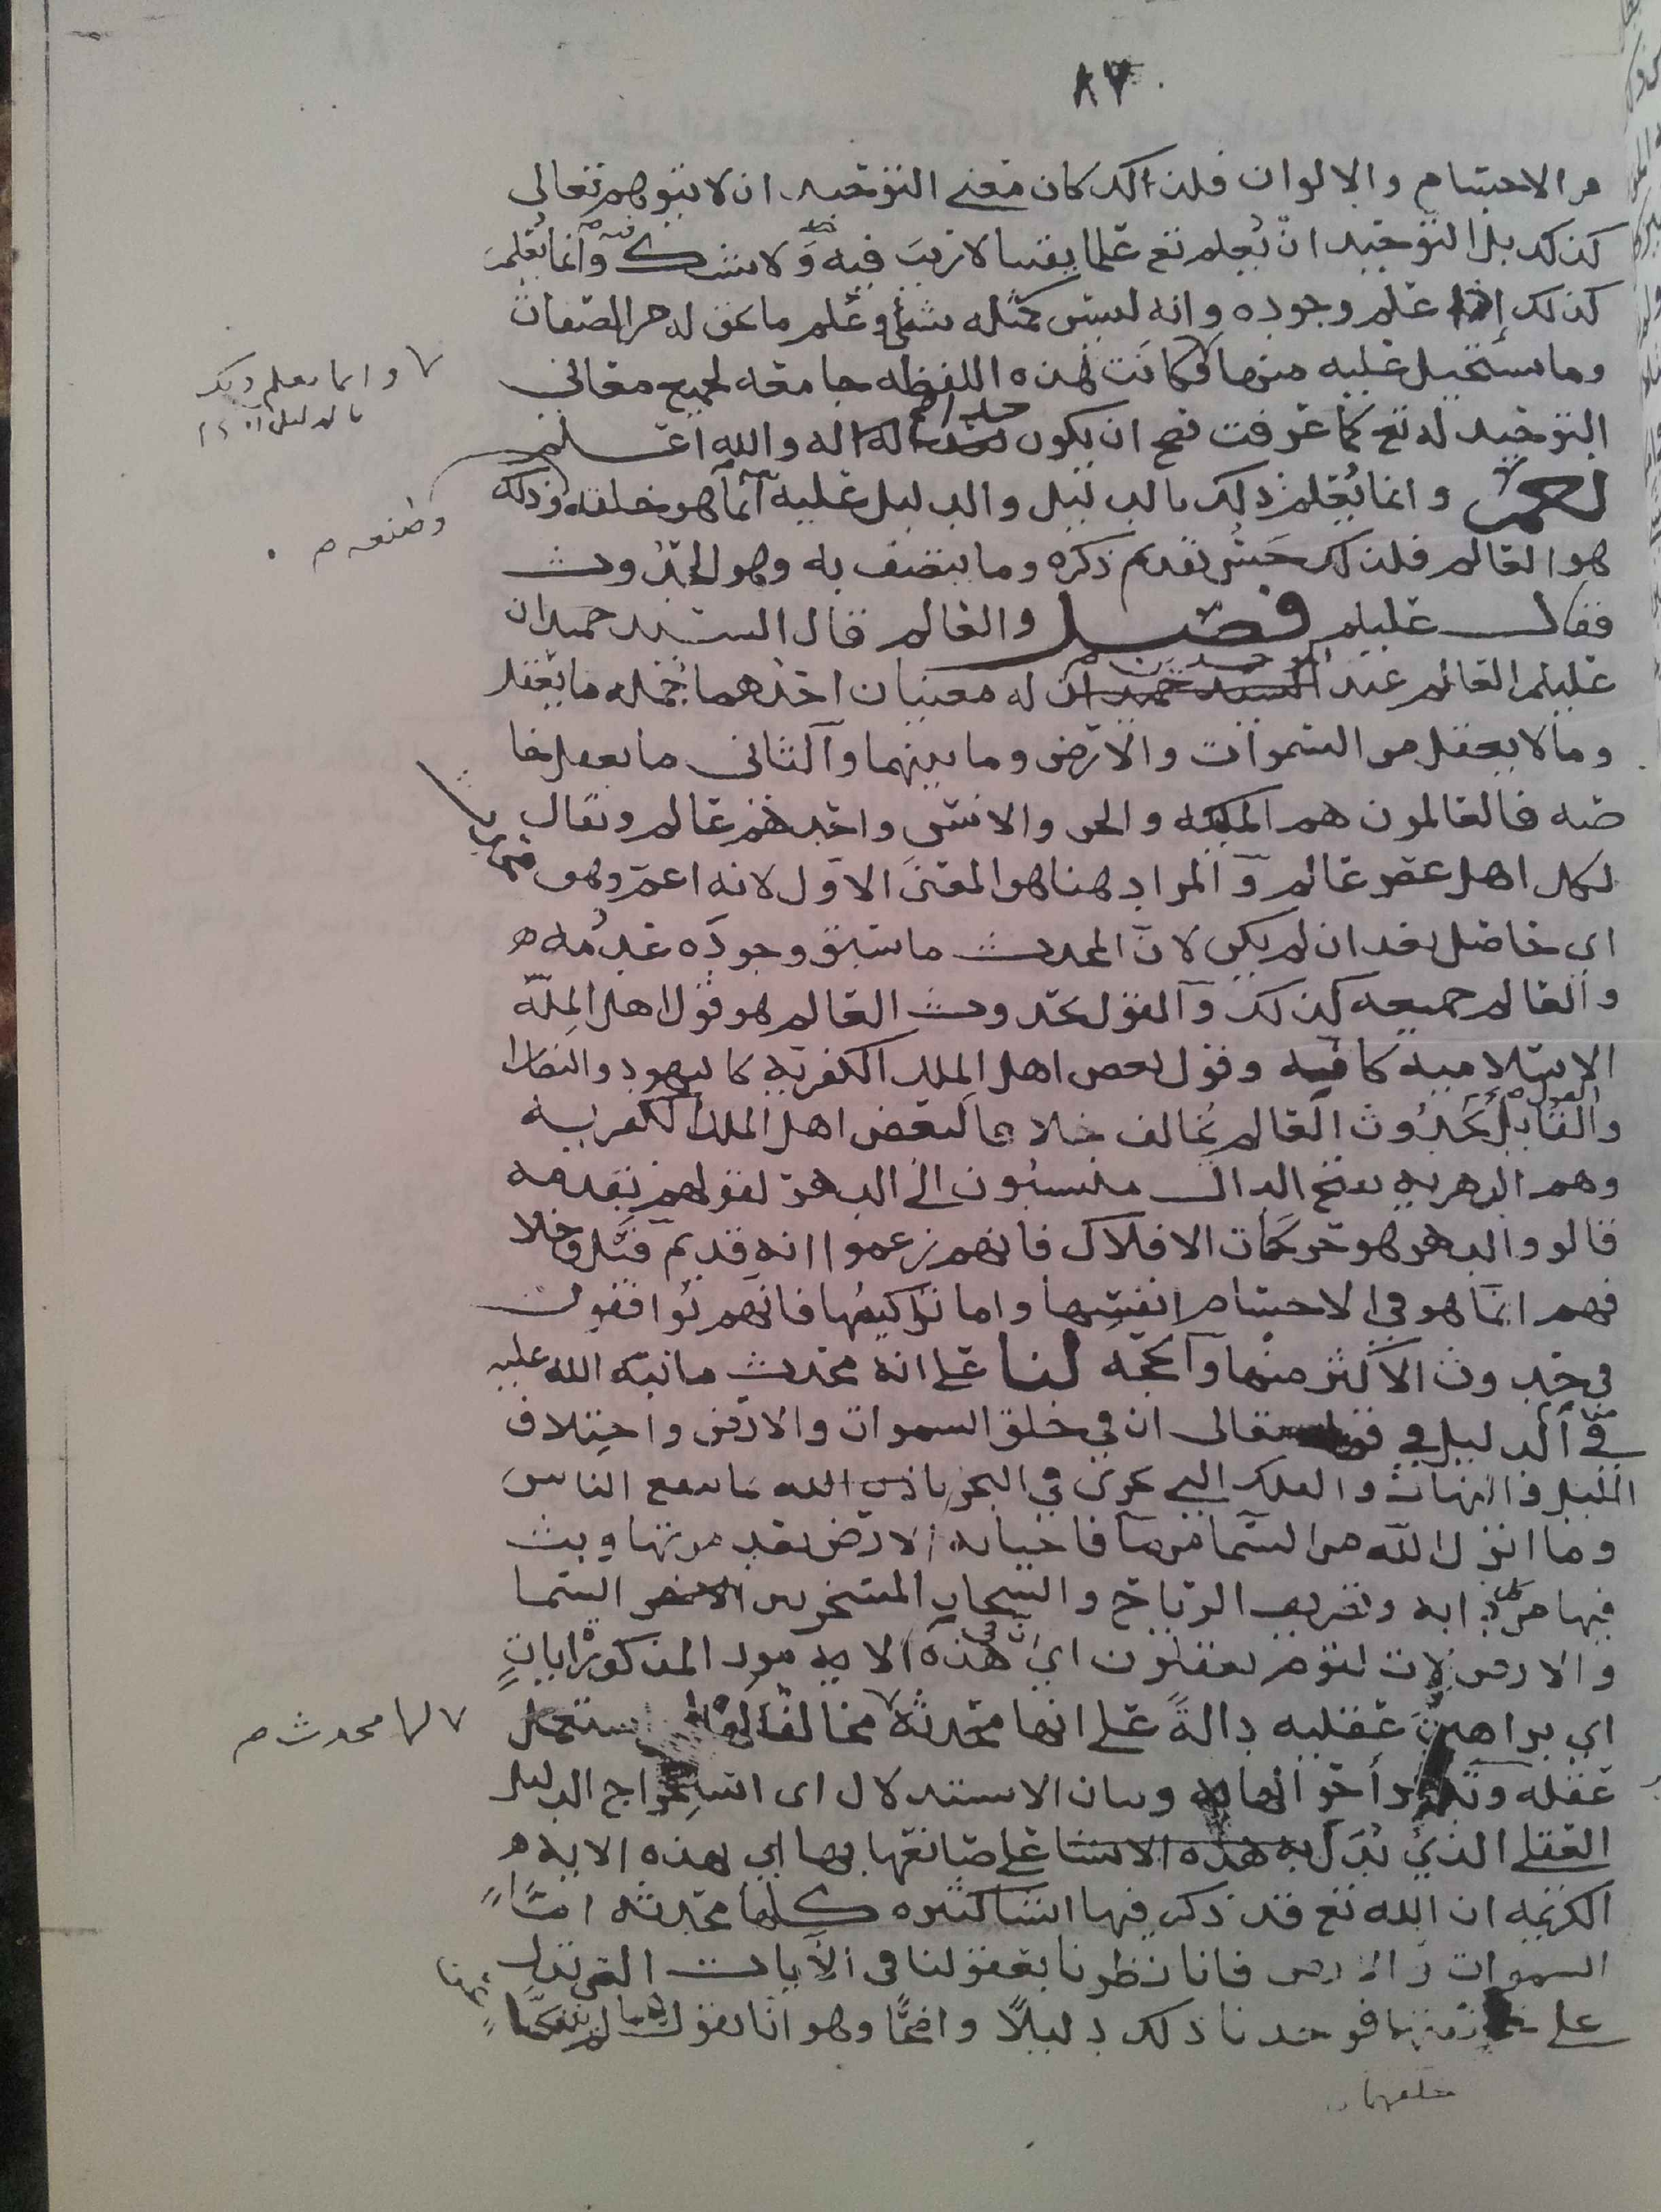 ٨٧
من الاجسام والالوان فلذالك كان معنى التوحيد ان لا يتوهم تعالى
كذلك بل التوحيد ان يُعلم تع علما يقينا لا ريب فيه ولا شك وانما يُعلم
كذلك إذا علم وجوده وانه ليس كمثله شي وعلم ما يحق له من الصفات
وما يستحيل عليه منها وكانت هذه اللفظه جامعه لجميع معاني
التوحيد له تع كما عرفت صح ان يكون اله والله اعلم
وانما يعلم ذلك
بالدليل
نعم وانما يُعلم ذلك بالدليل والدليل عليه انما هو خلقه وذلك
وصنعه م
هو العالم فلذلك حسُن تقديم ذكره وما يتصف به وهو الحدوث
فقال عليلم فصل والعالم قال السيد حميدان
عليلم العالم عند السيد حميدان له معنيان احدهما جمله ما يعقل
وما لا يعقل من السموات والارض وما بينهما والثاني ما يعقل خا
صه فالعالمون هم الملئكه والجن والانس واحدهم عالم ويقال
لكل اهل عصر عالم والمراد هنا هو المعنى الاول لانه اعم وهو محدث
اي حاصل بعد ان لم يكن لان المحدث ما سبق وجوده عدمُه
والعالم جميعه كذلك والقول بحدوث العالم هو قول اهل المِلّه
الاسلاميه كافه وقول بعض اهل المِلل الكفريه كاليهود والنصارا
والقول بحَدُوث العالم يخالف خلافا لبعض اهل الملل الكفريه
وهم الدهريه بفتح الدال منسبُون الى الدهر لقولهم بقدمه
قالو والدهر هو حركات الافلاك فانهم زعموا انه قديم قيل وخلا
فهم انما هو في الاجسام انفسِها واما تراكيبُها فانهم يُوافقون
في حدوث الاكثر منها والحجه لنا على انه محدث ما نبه الله عليه
من الدليل في قوله تعالى ان في خلق السموات والارض واختلاف
الليل والنهار والفلك التي تجري في البحر بما ينفع الناس
وما انزل الله من السما من ما فاحيا به الارض بعد موتها وبث
فيها من كل دابه وتصريف الرياح والسحاب المسخر بين السما
والارض لايات لقوم يعقلون اي في هذه الايه المذكوره اياتٍ
اي براهينَ عقليه دالةً على انها محدثه مخالفا لها استعمل
لها محدث م
عقله وتدبر احوالها وبيان الاستدلال اى استخراج الدليل
العقلي الذي يُدَل به هذه الاشيا على صانعها بها اي بهذه الايه
الكريمه ان الله تع قد ذكر فيها اشيا كثيره كلها محدثه امّا
السموات والارض فانا نظرنا بعقولنا في الآيات التي تدل
على فوجدنا ذلك دليلاً واضحًا وهو انا نقول انهما لم ينفكّا
خلقهما